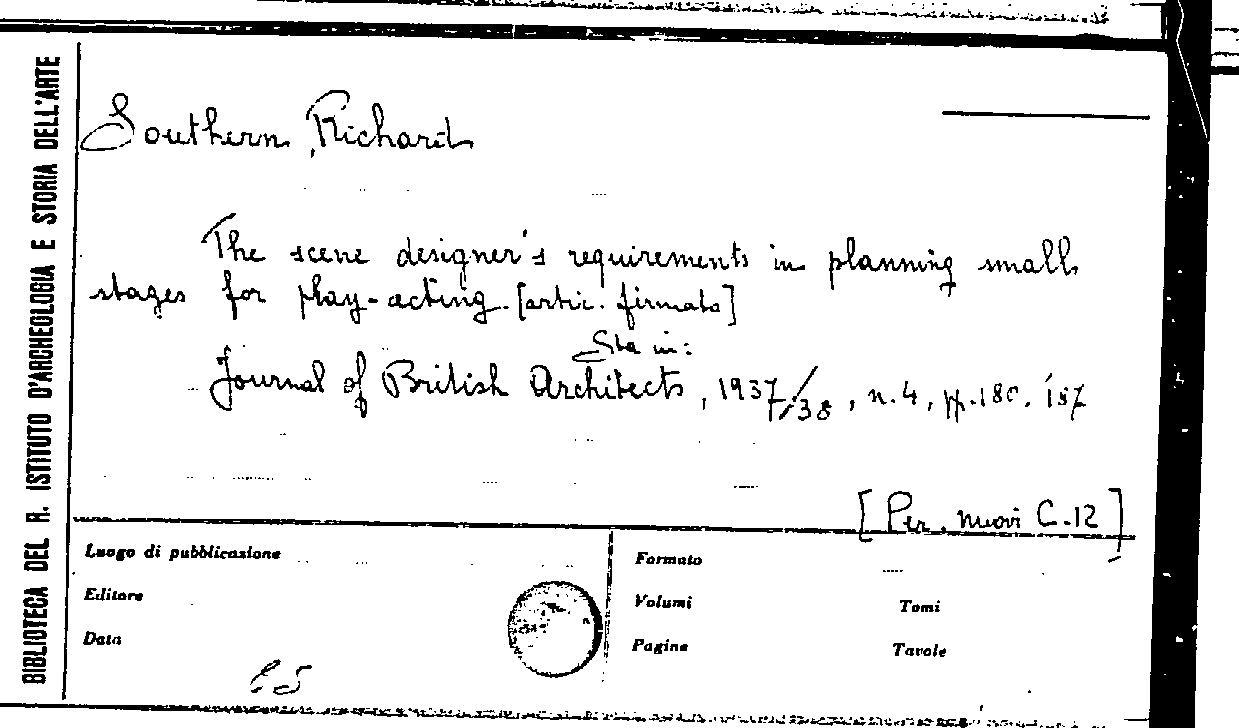 BIBLIOTECA DEL R. ISTITUTO D'ARCHEOLOGIA E STORIA DELL'ARTE
Southern, Richard
The scene designer's requirements in planning small
stages for play-acting. [artic. firmato]
Sta in:
Journal of British Architects, 1937/38, n.4, pp.180.187
[Per. nuovi C.12]
Luogo di pubblicazione
Formato
Editore
Volumi Tomi
Data
Pagine Tavole